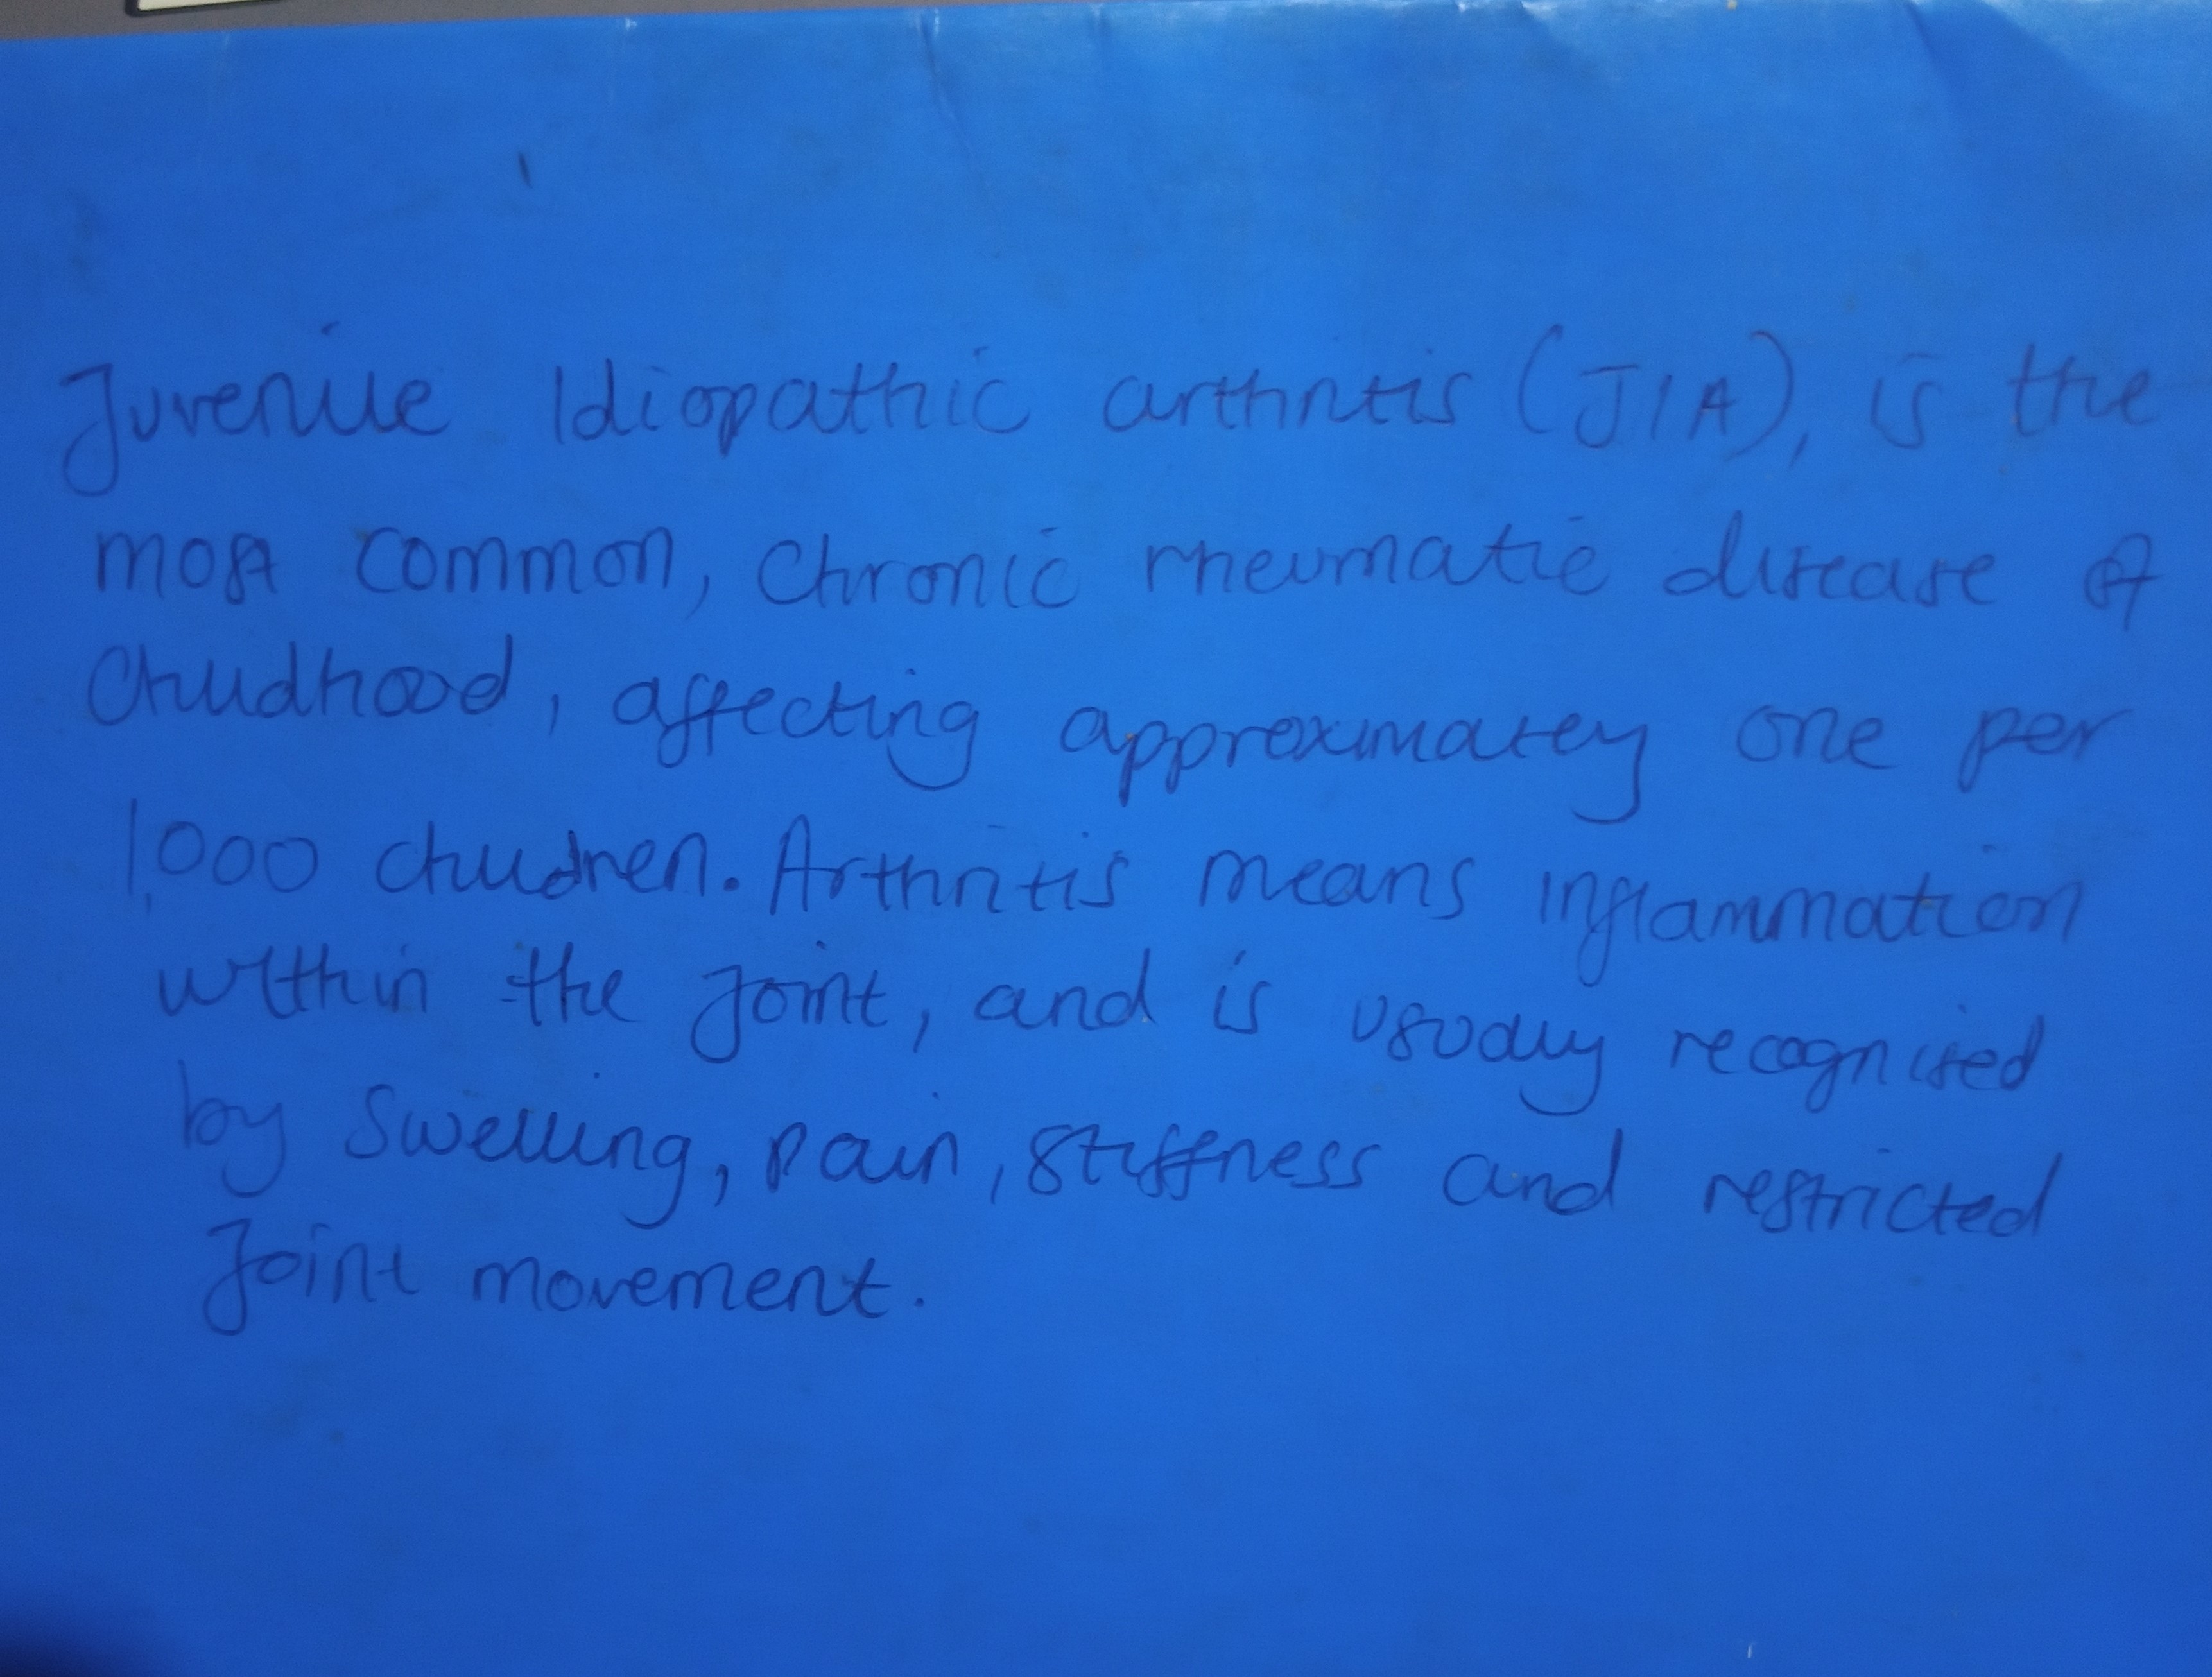 Juvenile Idiopathic arthritis (JIA), is the
most common, chronic rheumatic disease of
Childhood, affecting approximately one per
1,000 children. Arthritis means inflammation
within the joint, and is usually recognised
by Swelling, pain, stiffness and restricted
Joint movement.